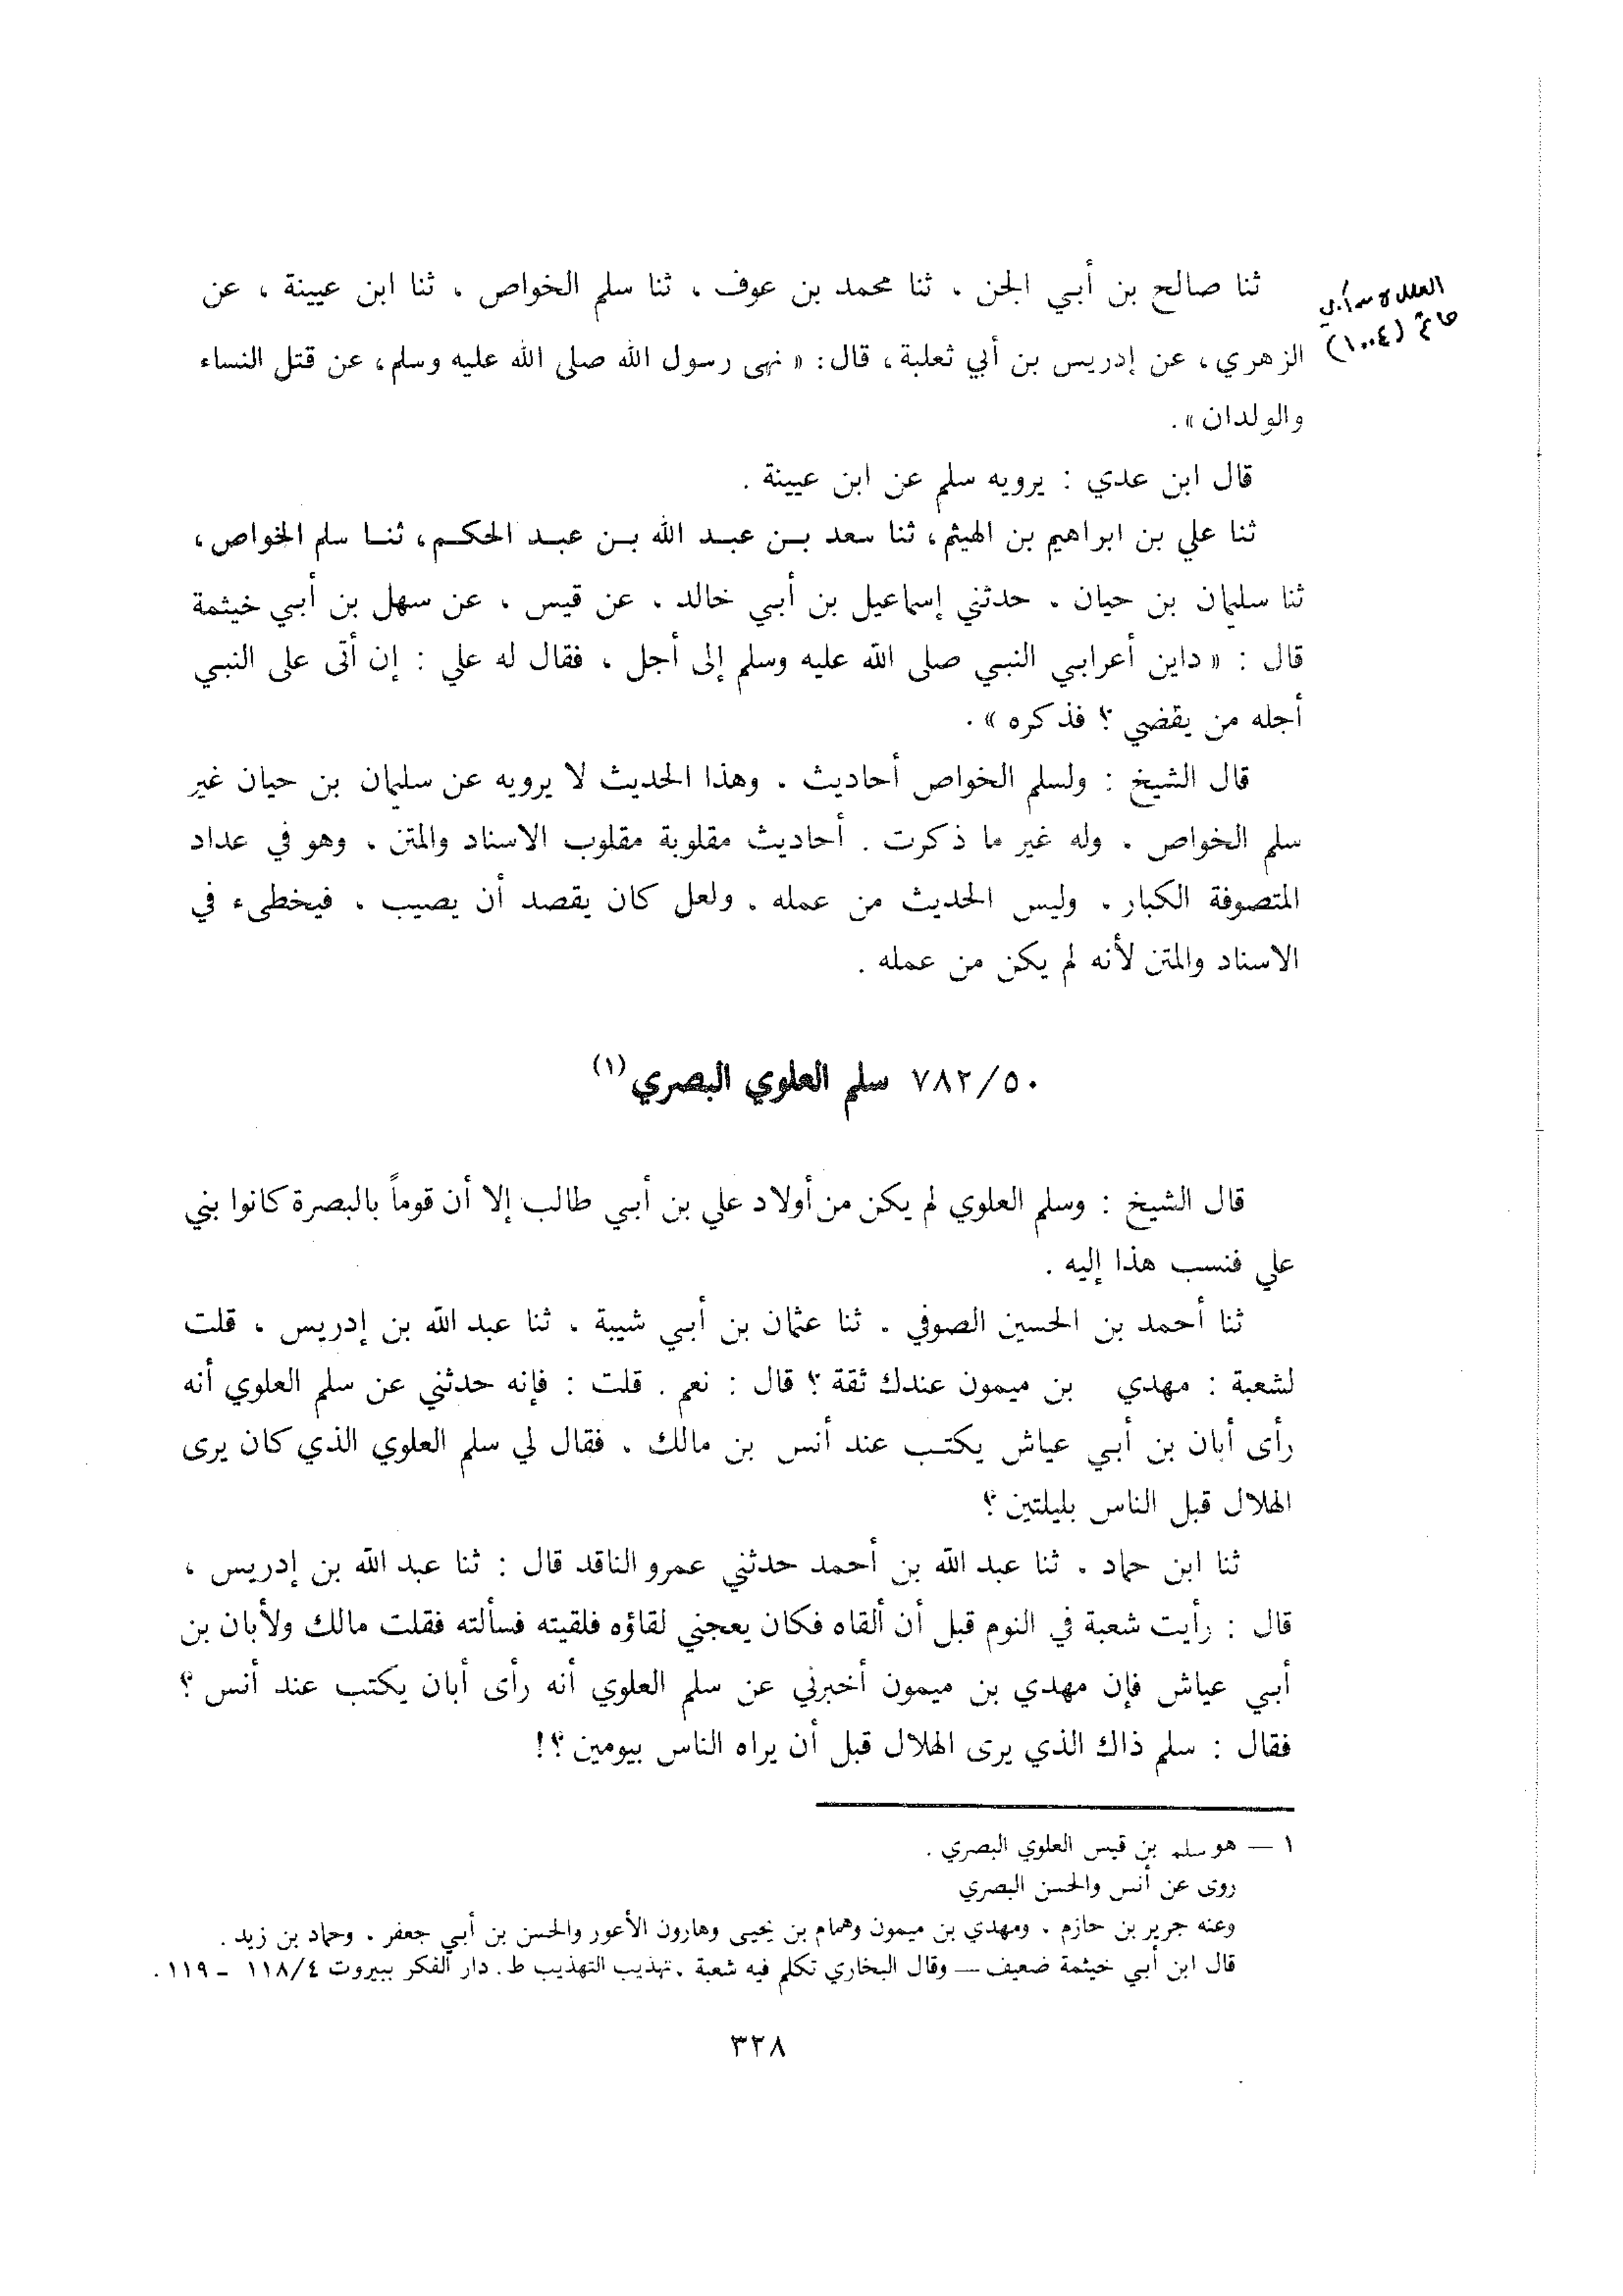 ثنا صالح بن أبي الجن ، ثنا محمد بن عوف ، ثنا سلم الخواص ، ثنا ابن عيينة ، عن
العلل لابن أبي
حاتم (١٠٠٤)
الزهري، عن إدريس بن أبي ثعلبة، قال: « نهى رسول الله صلى الله عليه وسلم، عن قتل النساء
والولدان ».
قال ابن عدي : يرويه سلم عن ابن عيينة .
ثنا علي بن ابراهيم بن الهيثم، ثنا سعد بن عبد الله بن عبد الحكم، ثنا سلم الخواص،
ثنا سليمان بن حيان ، حدثني إسماعيل بن أبي خالد ، عن قيس ، عن سهل بن أبي خيثمة
قال : « داين أعرابي النبي صلى الله عليه وسلم إلى أجل ، فقال له علي : إن أتى على النبي
أجله من يقضي ؟ فذكره » .
قال الشيخ : ولسلم الخواص أحاديث ، وهذا الحديث لا يرويه عن سليمان بن حيان غير
سلم الخواص ، وله غير ما ذكرت . أحاديث مقلوبة مقلوب الاسناد والمتن ، وهو في عداد
المتصوفة الكبار ، وليس الحديث من عمله ، ولعل كان يقصد أن يصيب ، فيخطىء في
الاسناد والمتن لأنه لم يكن من عمله .
٧٨٢/٥٠ سلم العلوي البصري (١)
قال الشيخ : وسلم العلوي لم يكن من أولاد علي بن أبي طالب إلا أن قوماً بالبصرة كانوا بني
علي فنسب هذا إليه .
ثنا أحمد بن الحسين الصوفي ، ثنا عثمان بن أبي شيبة ، ثنا عبد الله بن إدريس ، قلت
لشعبة : مهدي بن ميمون عندك ثقة ؟ قال : نعم . قلت : فإنه حدثني عن سلم العلوي أنه
رأى أبان بن أبي عياش يكتب عند أنس بن مالك ، فقال لي سلم العلوي الذي كان يرى
الهلال قبل الناس بليلتين ؟
ثنا ابن حماد ، ثنا عبد الله بن أحمد حدثني عمرو الناقد قال : ثنا عبد الله بن إدريس ،
قال : رأيت شعبة في النوم قبل أن ألقاه فكان يعجني لقاؤه فلقيته فسألته فقلت مالك ولأبان بن
أبي عياش فإن مهدي بن ميمون أخبرني عن سلم العلوي أنه رأى أبان يكتب عند أنس ؟
فقال : سلم ذاك الذي يرى الهلال قبل أن يراه الناس بيومين ؟!
١ — هو سلم بن قيس العلوي البصري .
روى عن أنس والحسن البصري
وعنه جرير بن حازم ، ومهدي بن ميمون وهمام بن يحيى وهارون الأعور والحسن بن أبي جعفر ، وحماد بن زيد .
قال ابن أبي خيثمة ضعيف — وقال البخاري تكلم فيه شعبة . تهذيب التهذيب ط. دار الفكر ببيروت ١١٨/٤ – ١١٩ .
٣٢٨